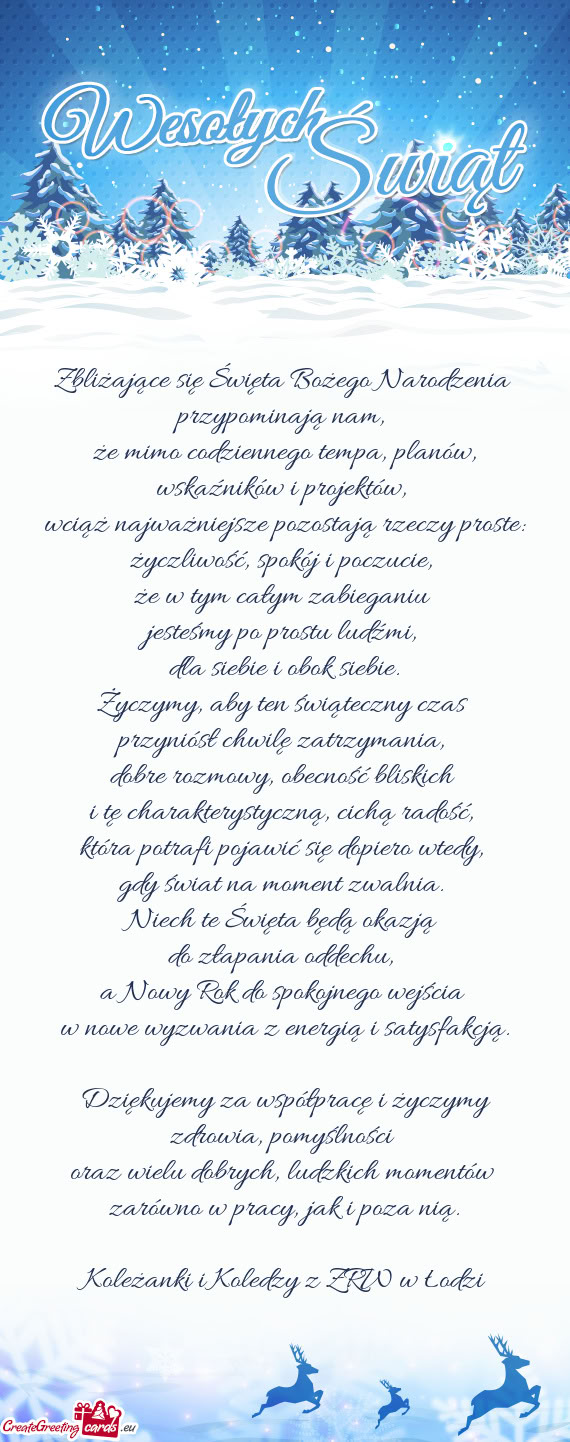 Wesołych
Świąt
Zbliżające się Święta Bożego Narodzenia
przypominają nam,
że mimo codziennego tempa, planów,
wskaźników i projektów,
wciąż najważniejsze pozostają rzeczy proste:
życzliwość, spokój i poczucie,
że w tym całym zabieganiu
jesteśmy po prostu ludźmi,
dla siebie i obok siebie.
Życzymy, aby ten świąteczny czas
przyniósł chwilę zatrzymania,
dobre rozmowy, obecność bliskich
i tę charakterystyczną, cichą radość,
która potrafi pojawić się dopiero wtedy,
gdy świat na moment zwalnia.
Niech te Święta będą okazją
do złapania oddechu,
a Nowy Rok do spokojnego wejścia
w nowe wyzwania z energią i satysfakcją.
Dziękujemy za współpracę i życzymy
zdrowia, pomyślności
oraz wielu dobrych, ludzkich momentów
zarówno w pracy, jak i poza nią.
Koleżanki i Koledzy z ZRW w Łodzi
CreateGreeting cards .eu